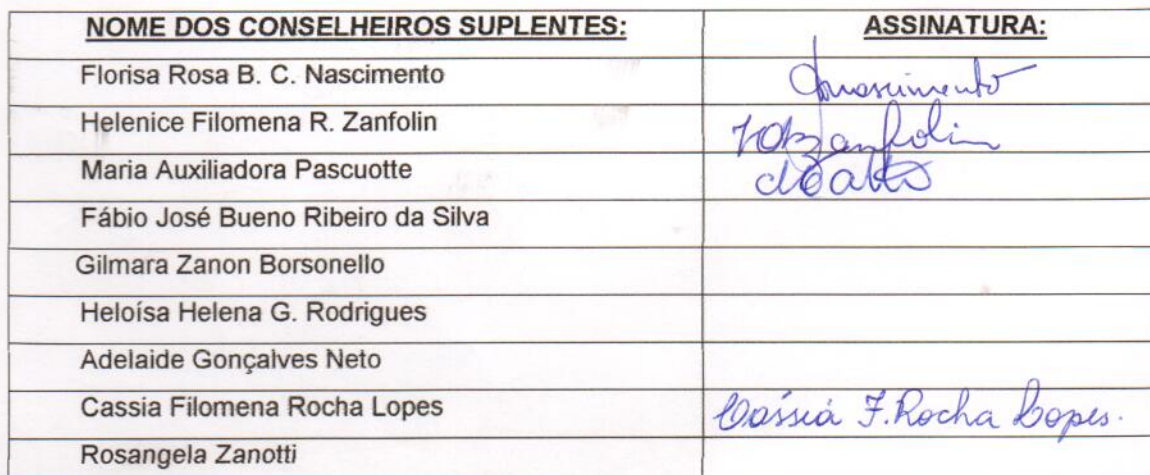 NOME DOS CONSELHEIROS SUPLENTES: ASSINATURA:
Florisa Rosa B. C. Nascimento
Helenice Filomena R. Zanfolin
Maria Auxiliadora Pascuotte
Fábio José Bueno Ribeiro da Silva
Gilmara Zanon Borsonello
Heloísa Helena G. Rodrigues
Adelaide Gonçalves Neto
Cassia Filomena Rocha Lopes Cássia F. Rocha Lopes.
Rosangela Zanotti